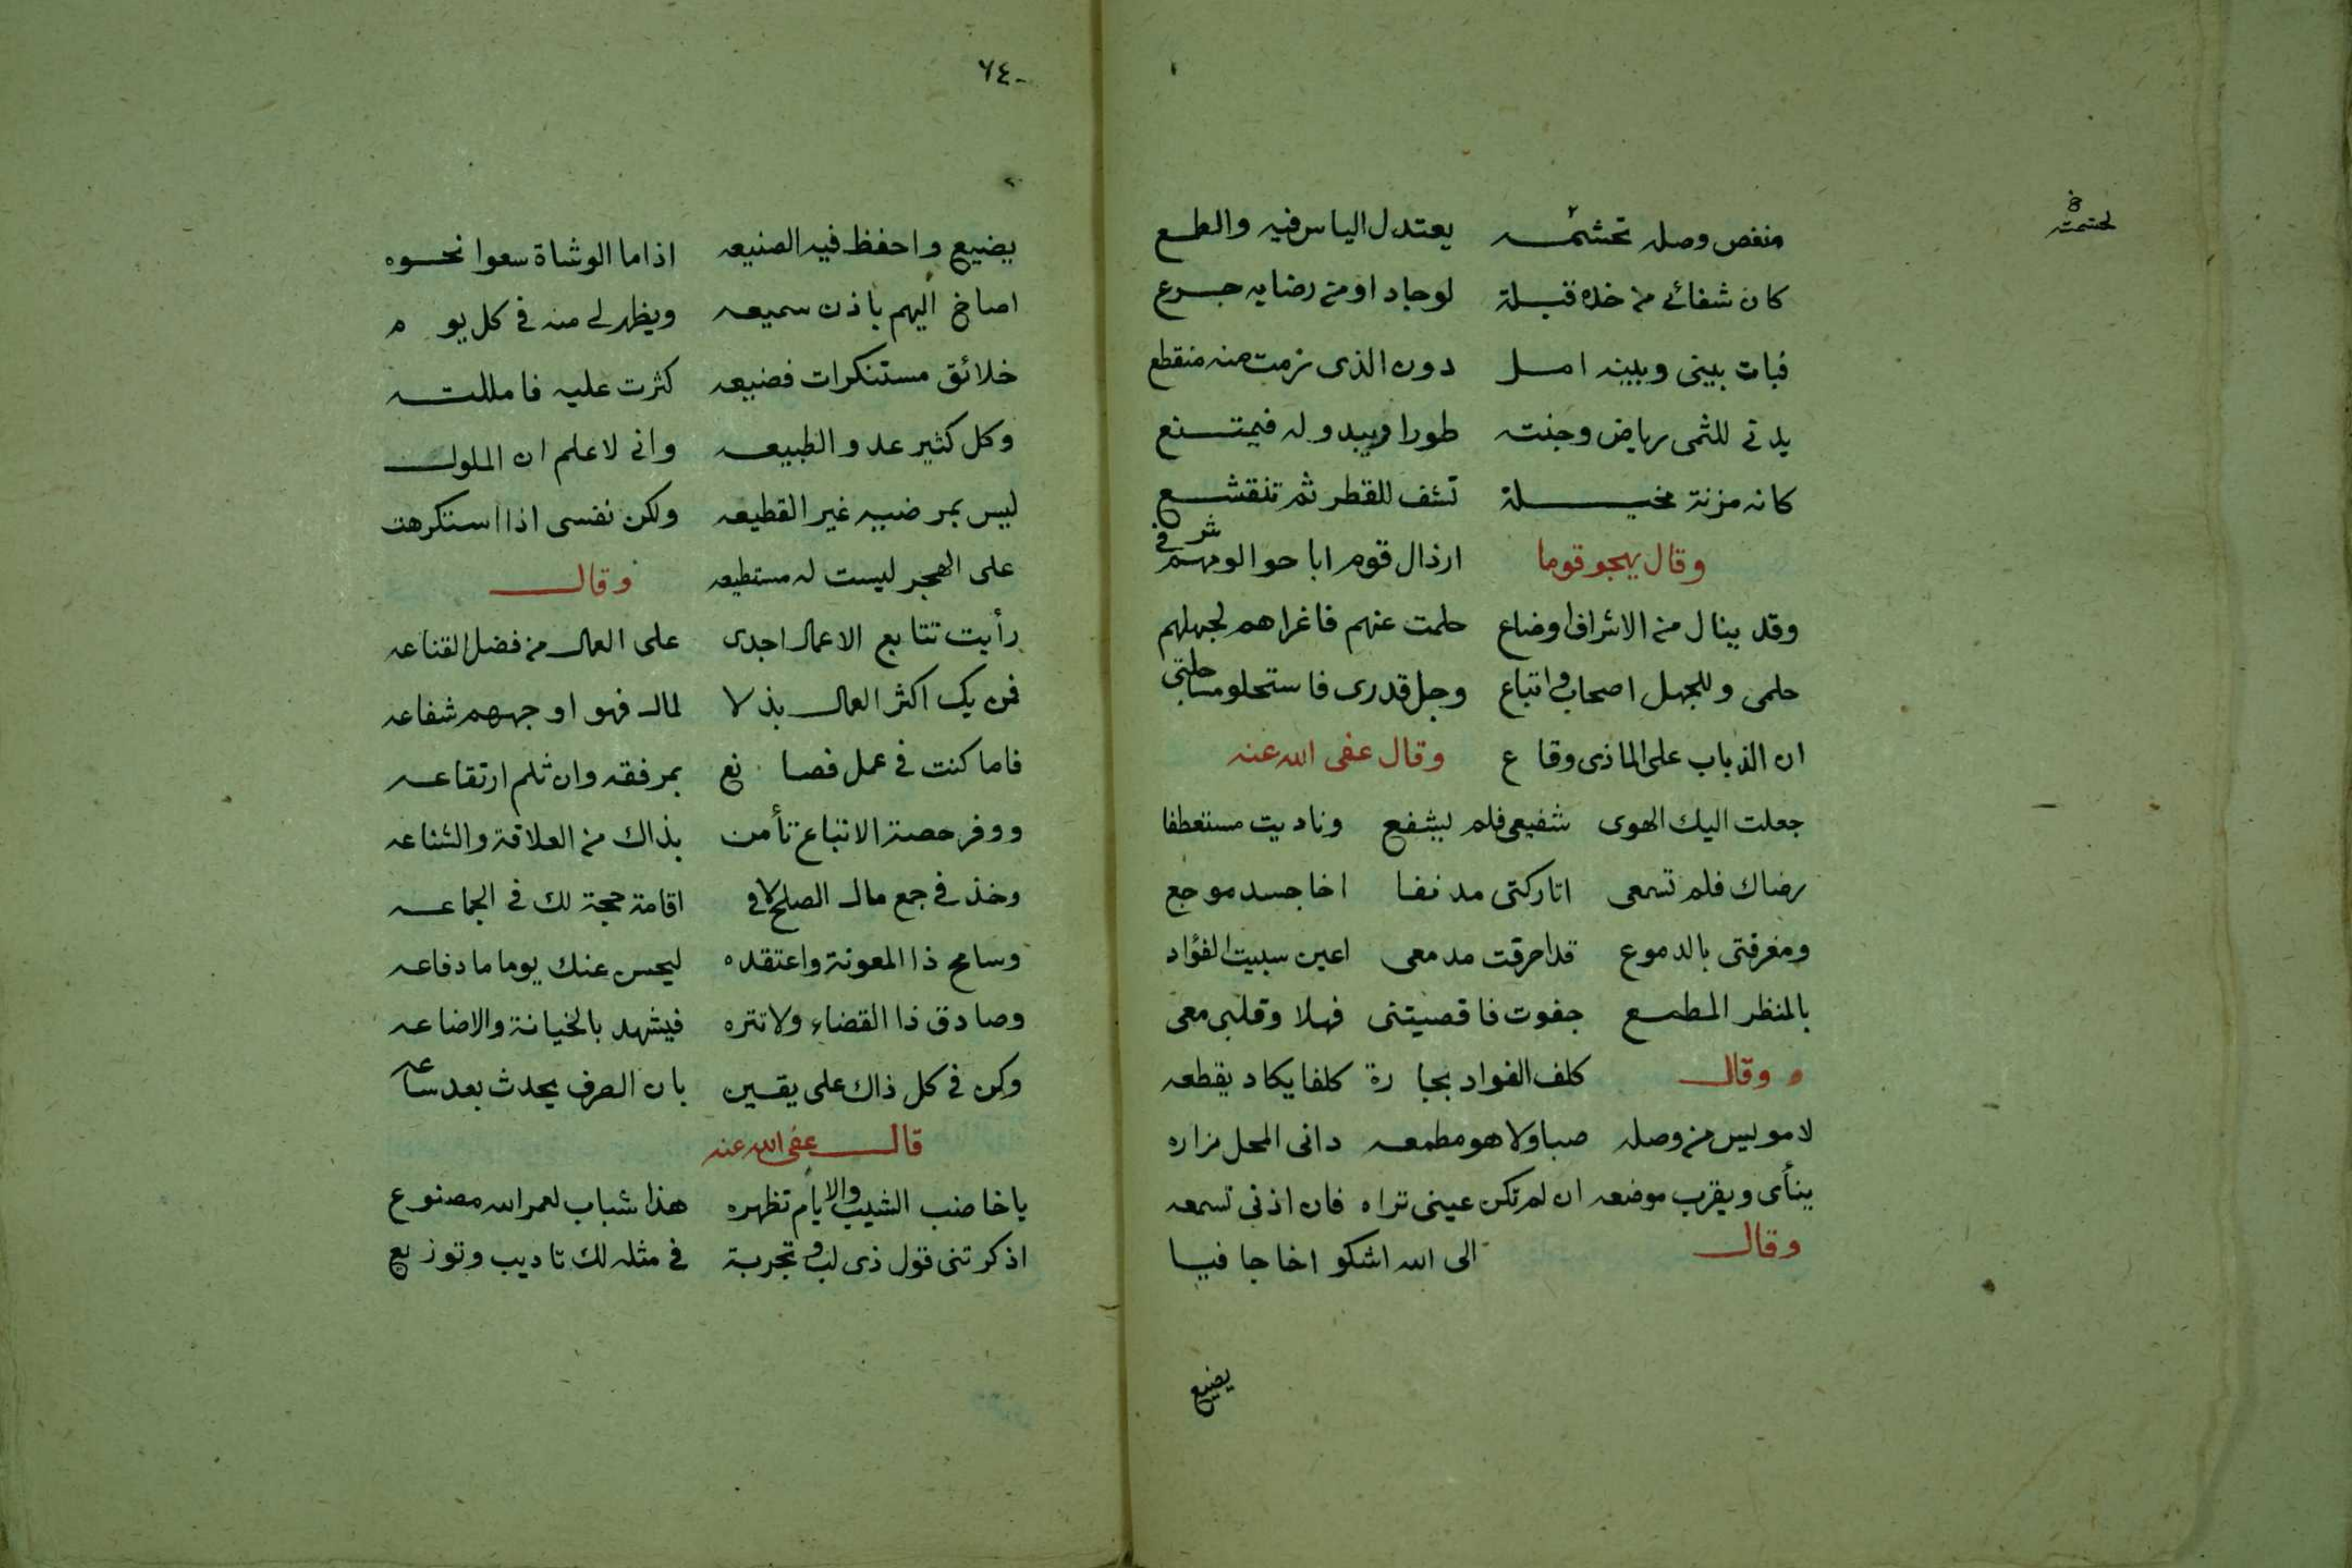 منغص وصله تحشمه يعتدل الياس فيه والطمع
لحشمته
كان شفائى من خده قبلة لوجاد او من رضابه جرع
فبات بينى وبينه امل دون الذى نرمت منه منقطع
يدنى للثمى رياض وجنته طورا ويبدو له فيمتنع
كانه مزنة مخيلة تشف للقطر ثم تنقشع
وقال يهجو قوما ارذال قوم اباحوا لومهم شرفى
وقد ينال من الاشراف اوضاع حلمت عنهم فاغراهم لجهلهم
حلمى وللجهل اصحاب واتباع وجل قدرى فاستحلوا مساجلتى
ان الذباب على الماذى وقاع وقال عفى الله عنه
جعلت اليك الهوى شفيعى فلم يشفع وناديت مستعطفا
رضاك فلم تسمعى اتاركتى مدنفا اخا جسد موجع
ومغرقتى بالدموع قد احرقت مدمعى اعين سبيت الفؤاد
بالمنظر المطمع جفوت فاقصيتنى فهلا وقلبى معى
وقال كلف الفواد بجارة كلفا يكاد يقطعه
لا مويس من وصله صبا ولا هو مطمعه دانى المحل مزاره
ينأى ويقرب موضعه ان لم تكن عينى تراه فان اذنى تسمعه
وقال الى الله اشكو اخا جافيا
يضيع
٦٤
يضيع واحفظ فيه الصنيعه اذا ما الوشاة سعوا نحوه
اصاخ اليهم باذن سميعه ويظهر لى منه فى كل يوم
خلائق مستنكرات فضيعه كثرت عليه فامللته
وكل كثير عدو الطبيعه وانى لاعلم ان الملول
ليس بمرضيه غير القطيعه ولكن نفسى اذا استنكرهت
على الهجر ليست له مستطيعه وقال
رأيت تتابع الاعمال اجدى على العمال من فضل القناعه
فمن يك اكثر العمال بذلا لمال فهو اوجههم شفاعه
فاما كنت فى عمل فصانع بمرفقه وان ثلم ارتقاعه
ووفر حصة الاتباع تأمن بذاك من العلاقة والشناعه
وخذ فى جمع مال الصلح لا فى اقامة حجة لك فى الجماعه
وسامح ذا المعونة واعتقده ليحسن عنك يوما ما دفاعه
وصادق ذا القضاء ولا تتره فيشهد بالخيانة والاضاعه
وكن فى كل ذاك على يقين بان الصرف يحدث بعد ساعه
قال عفى الله عنه
يا خاضب الشيب والايام تظهره هذا شباب لعمر الله مصنوع
اذكرتنى قول ذى لب وتجربة فى مثله لك تاديب وتوزيع